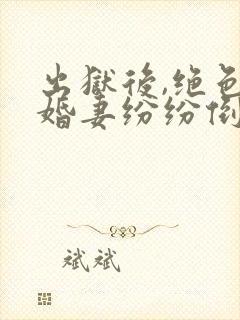 出獄後,絶色
婚妻纷纷倒
斌斌